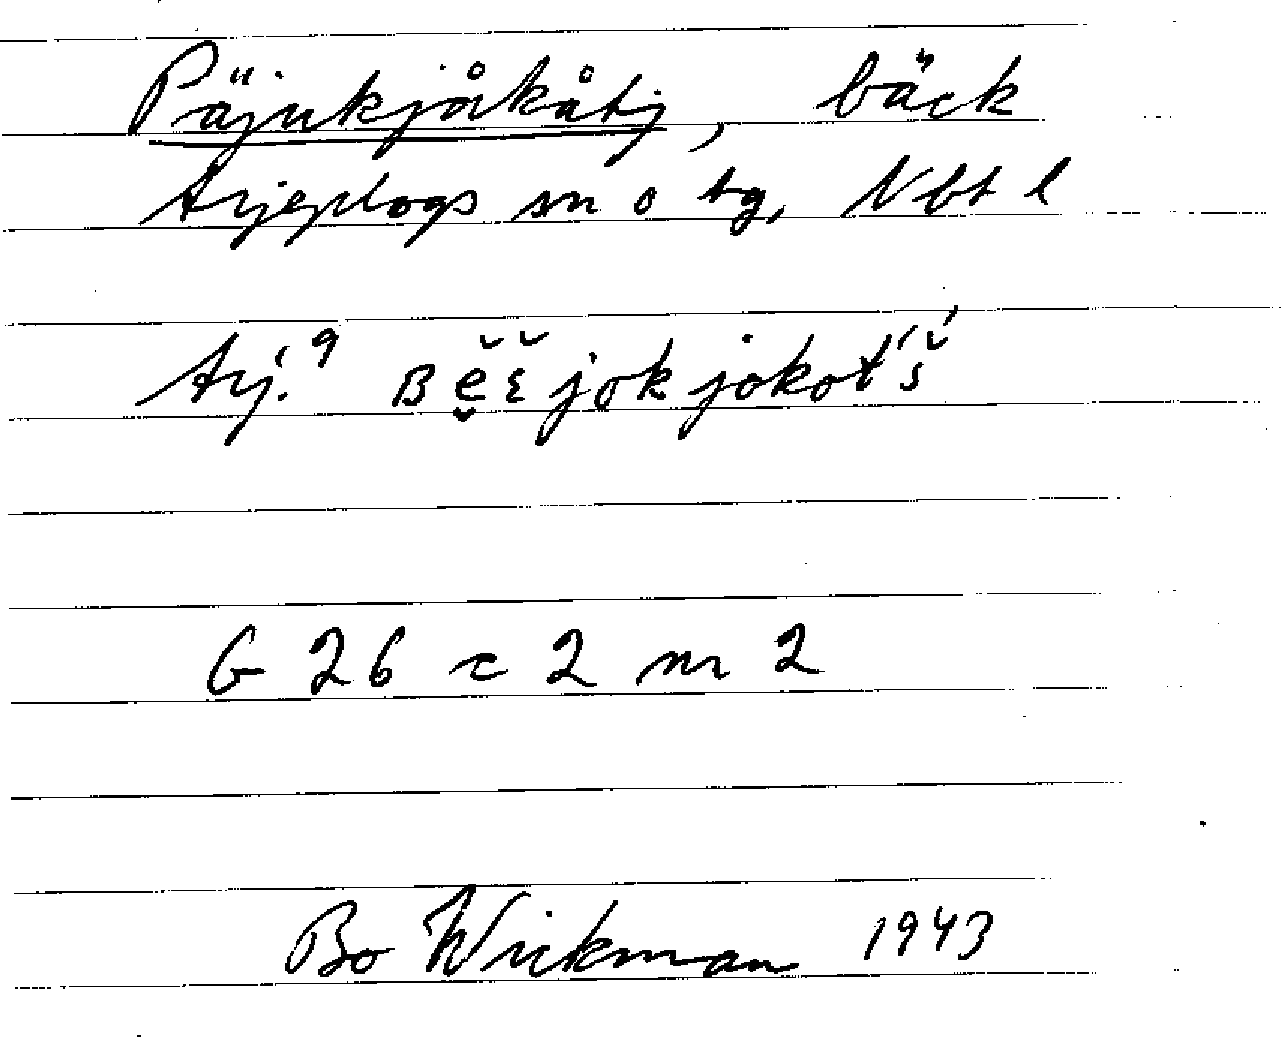 Päjukjåkåtj, bäck
Arjeplogs sn o tg, Nbt l
Arj.⁹ ʙĕ̬ɛ̆jokjokot́š́
G 26 c 2 nr 2
Bo Wickman 1943